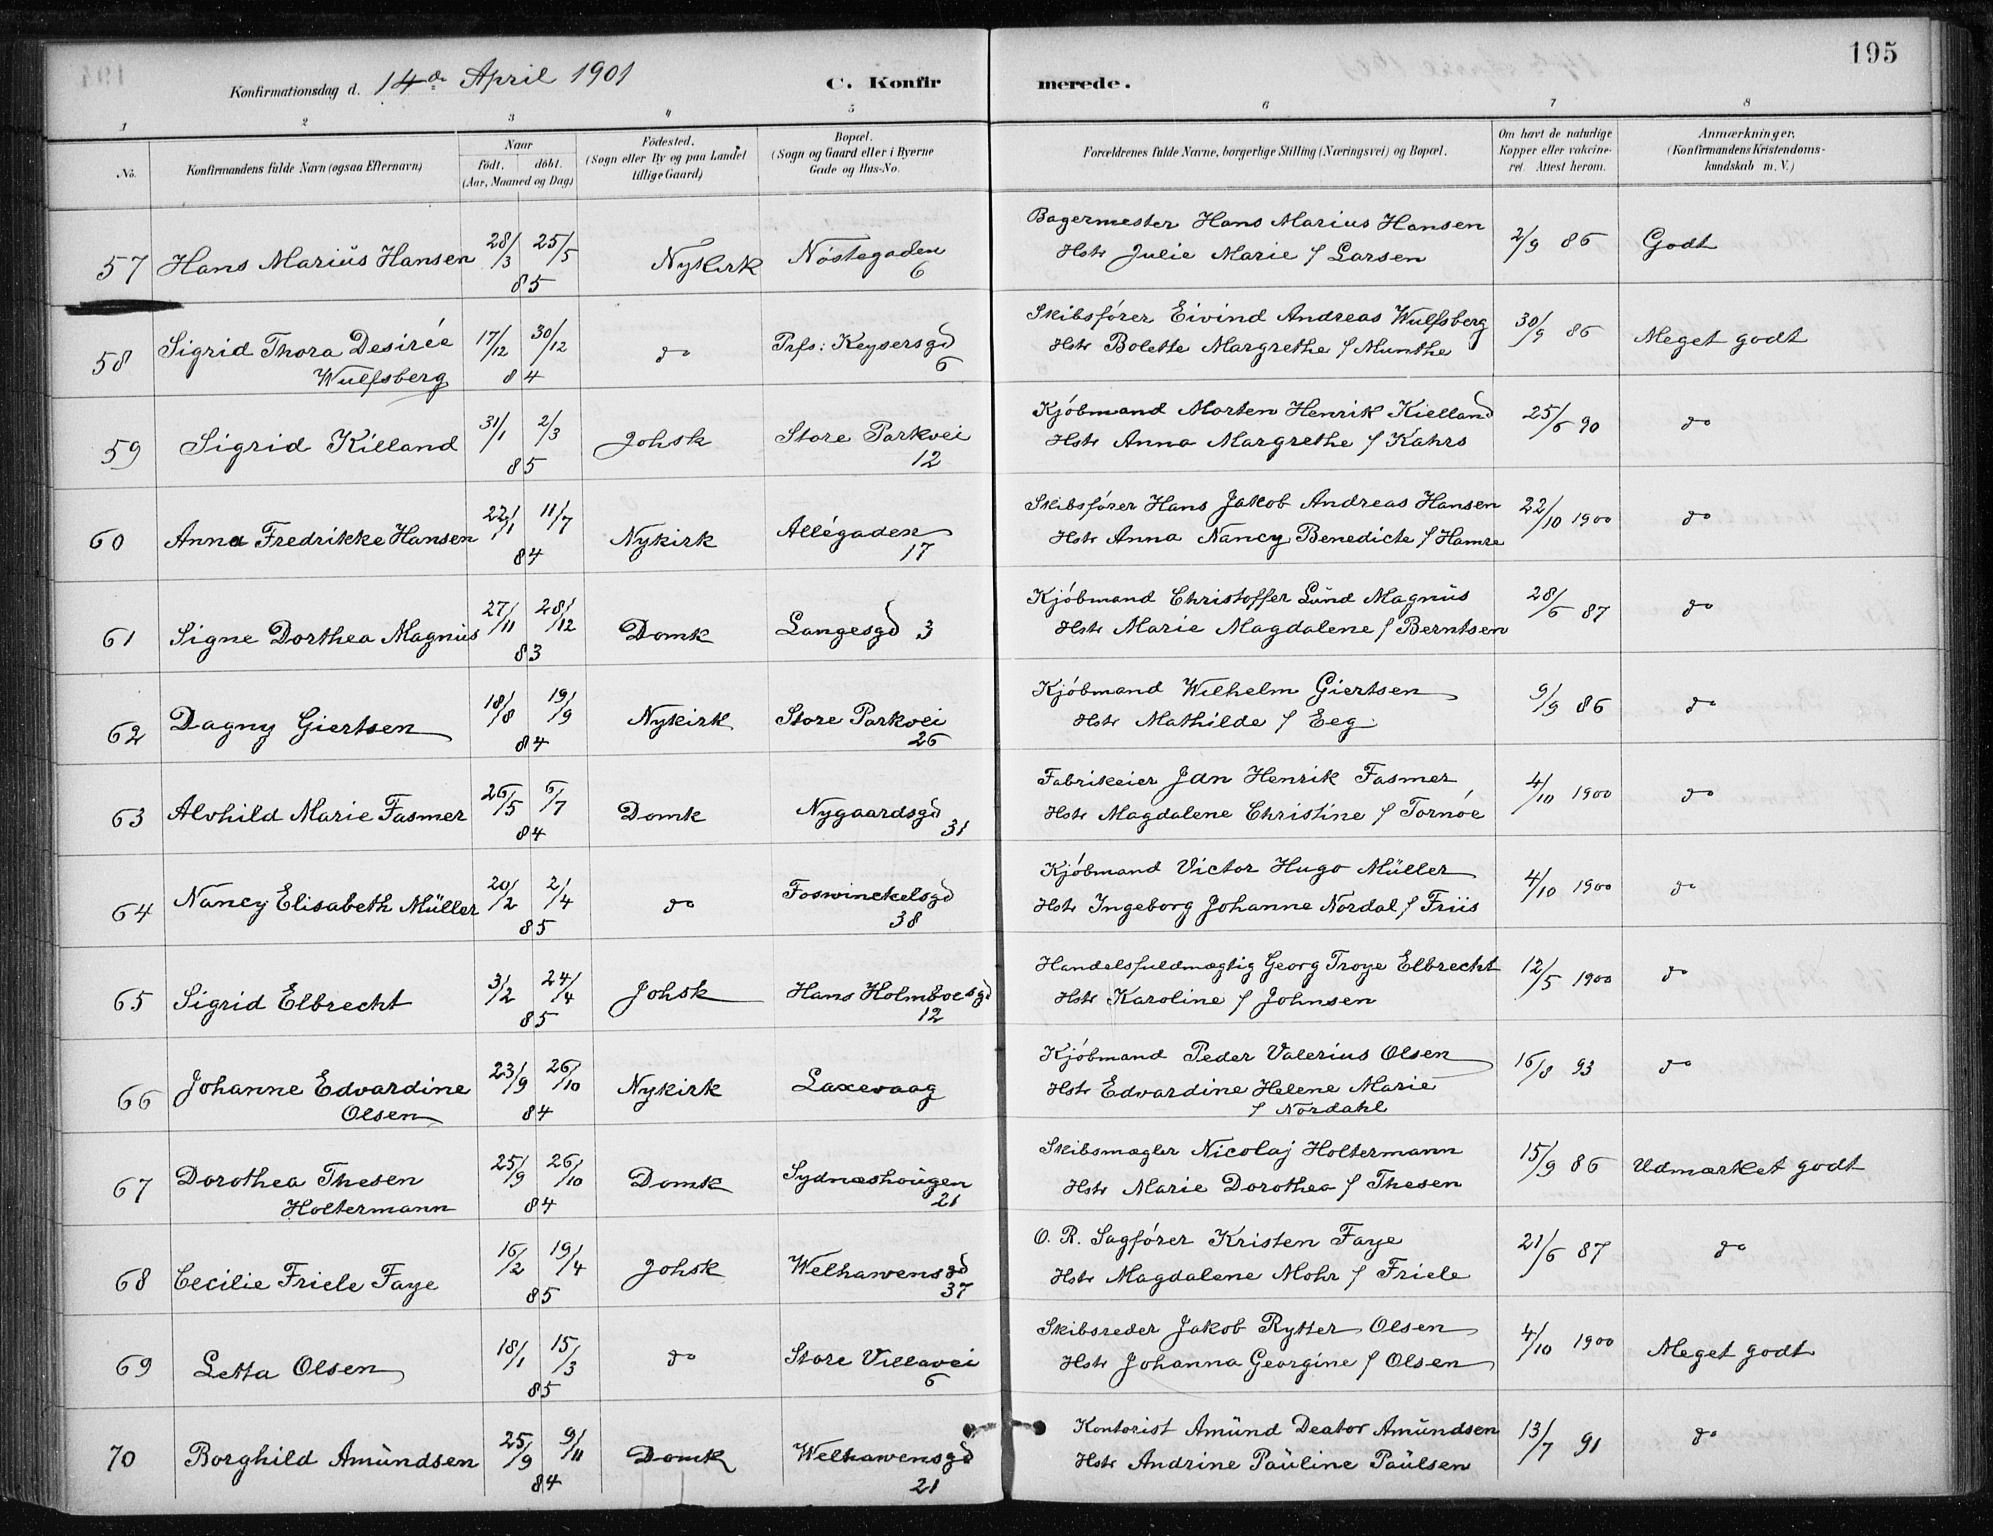 195
Konfirmationsdag d. 14de April 1901 C. Konfirmerede.
1 2 3 4 5 6 7 8
No. Konfirmandens fulde Navn (ogsaa Efternavn) Naar født. døbt. (Aar, Maaned og Dag) Fødested. (Sogn eller By og paa Landet tillige Gaard) Bopæl. (Sogn og Gaard eller i Byerne Gade og Hus-No. Forældrenes fulde Navne, borgerlige Stilling (Næringsvei) og Bopæl. Om havt de naturlige Kopper eller vakcineret. Attest herom. Anmærkninger, (Konfirmandens Kristendomskundskab m. V.)
57 Hans Marius Hansen 28/3 25/5 85 Nykirk Nöstegaden 6 Bagermester Hans Marius Hansen
Hstr Julie Marie f Larsen 2/9 86 Godt
58 Sigrid Thora Desirée Wulfsberg 17/12 30/12 84 do Prfs: Keysersgd 6 Skibsfører Eivind Andreas Wulfsberg
Hstr Bolette Margrethe f Munthe 30/9 86 Meget godt
59 Sigrid Killand 31/1 2/3 85 Johsk Store Parkvei 12 Kjöbmand Morten Henrik Kielland
Hstr Anna Margrethe f Kahrs 25/6 90 do
60 Anna Fredrikke Hansen 22/1 11/7 84 Nykirk Allégaden 17 Skibsfører Hans Jakob Andreas Hansen
Hstr Anna Nancy Benedicte f Hamre 22/10 1900 do
61 Signe Dorthea Magnus 27/11 28/12 83 Domk Langesgd 3 Kjöbmand Christoffer Lund Magnus
Hstr Marie Magdalene f Berntsen 28/6 87 do
62 Dagny Giertsen 18/8 19/9 84 Nykirk Store Parkvei 26 Kjöbmand Wilhelm Giertsen
Hstr Mathilde f Eeg 9/9 86 do
63 Alvhild Marie Fasmer 26/5 6/7 84 Domk Nygaardsgd 31 Fabrikeier Jdn Henrik Fasmer
Hstr Magdalene Christine f Tornöe 4/10 1900 do
64 Nancy Elisabeth Müller 20/2 2/4 85 do Foswinckelsgd 38 Kjöbmand Victor Hugo Müller
Hstr Ingeborg Johanne Nordal f Friis 4/10 1900 do
65 Sigrid Elbrecht 3/2 24/4 85 Johsk Hans Holmboesgd 12 Handelsfuldmægtig Georg Troye Elbrecht
Hstr Karoline f Johnsen 12/5 1900 do
66 Johanne Edvardine Olsen 23/9 26/10 84 Nykirk Laxevaag Kjöbmand Peder Valerius Olsen
Hstr Edvardine Helene Marie
f Nordahl 16/8 93 do
67 Dorothea Thesen Holtermann 25/9 26/10 84 Domk Sydnæshougen 21 Skibsmægler Nicolaj Holtermann
Hstr Marie Dorothea f Thesen 15/9 86 Udmærket godt
68 Cecilie Friele Faye 16/2 19/4 85 Johsk Welhavensgd 37 O. R. Sagfører Kristen Faye
Hstr Magdalene Mohr f Friele 21/6 87 do
69 Letta Olsen 18/1 15/3 85 do Store Villavei 6 Skibsreder Jakob Rytter Olsen
Hstr Johanna Georgine f Olsen 4/10 1900 Meget godt
70 Borghild Amundsen 25/9 9/11 84 Domk Welhavensgd 21 Kontorist Amund Deator Amundsen
Hstr Andrine Pauline Paulsen 13/7 91 do